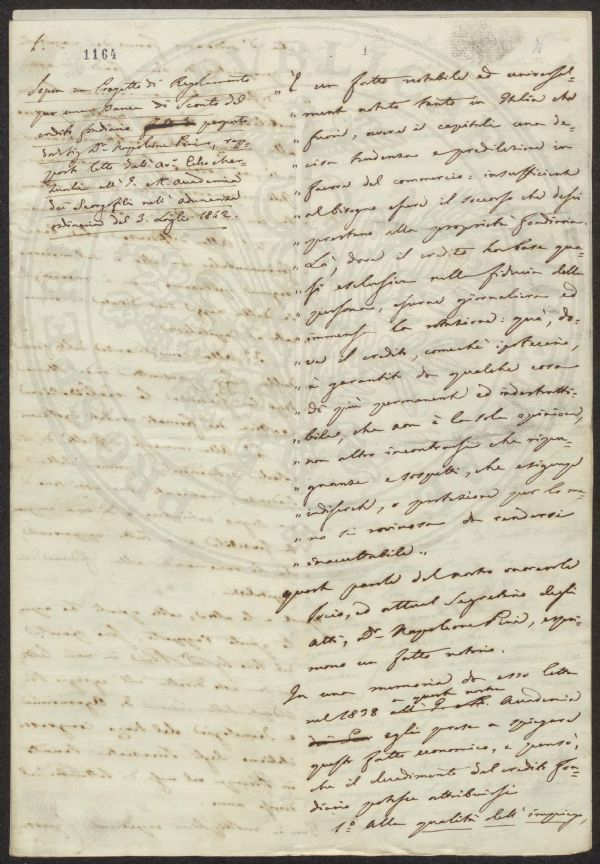 1.
1164
1
Sopra un Progetto di Regolamento
per una Banca di Sconto del
credito fondiario proposto
dal Sig. Dr. Napoleone Pini, rap-
porto letto dall'Avv. Elio
all'I. e R. Accademia
dei Georgofili nell'adunanza
ordinaria del 3. Luglio 1842.
"È un fatto notabile ed universal-
"mente notato tanto in Italia che
"fuori, avere i capitali una de-
"cisa tendenza e predilezione in
"favore del commercio: insufficiente
"al bisogno essere il soccorso che dessi
"apprestano alla proprietà fondiaria.
"Là, dove il credito ha base qua-
"si esclusiva nella fiducia delle
"persone, esserne giornaliera ed
"immensa la rotazione: quà, do-
"ve il credito, comechè ipotecario,
"è garantito da qualche cosa
"di più permanente ed indestrutti-
"bile, che non è la sola opinione,
"non altro incontrarsi che repu-
"gnanze e sospetti, che esigenze
"indiscrete, o protezione per lo me-
"no sì rovinosa da rendersi
"inaccettabile."
Queste parole del nostro onorevole
Socio, ed attual Segretario degli
Atti, Dr. Napoleone Pini, espri-
mono un fatto notorio.
In una memoria da esso letta
nel 1838 a questa nostra I. e R. Accademia
egli prese a spiegare
questo fatto economico, e pensò,
che il decadimento del credito fon-
diario potesse attribuirsi
1.° Alla qualità dell'impiego,